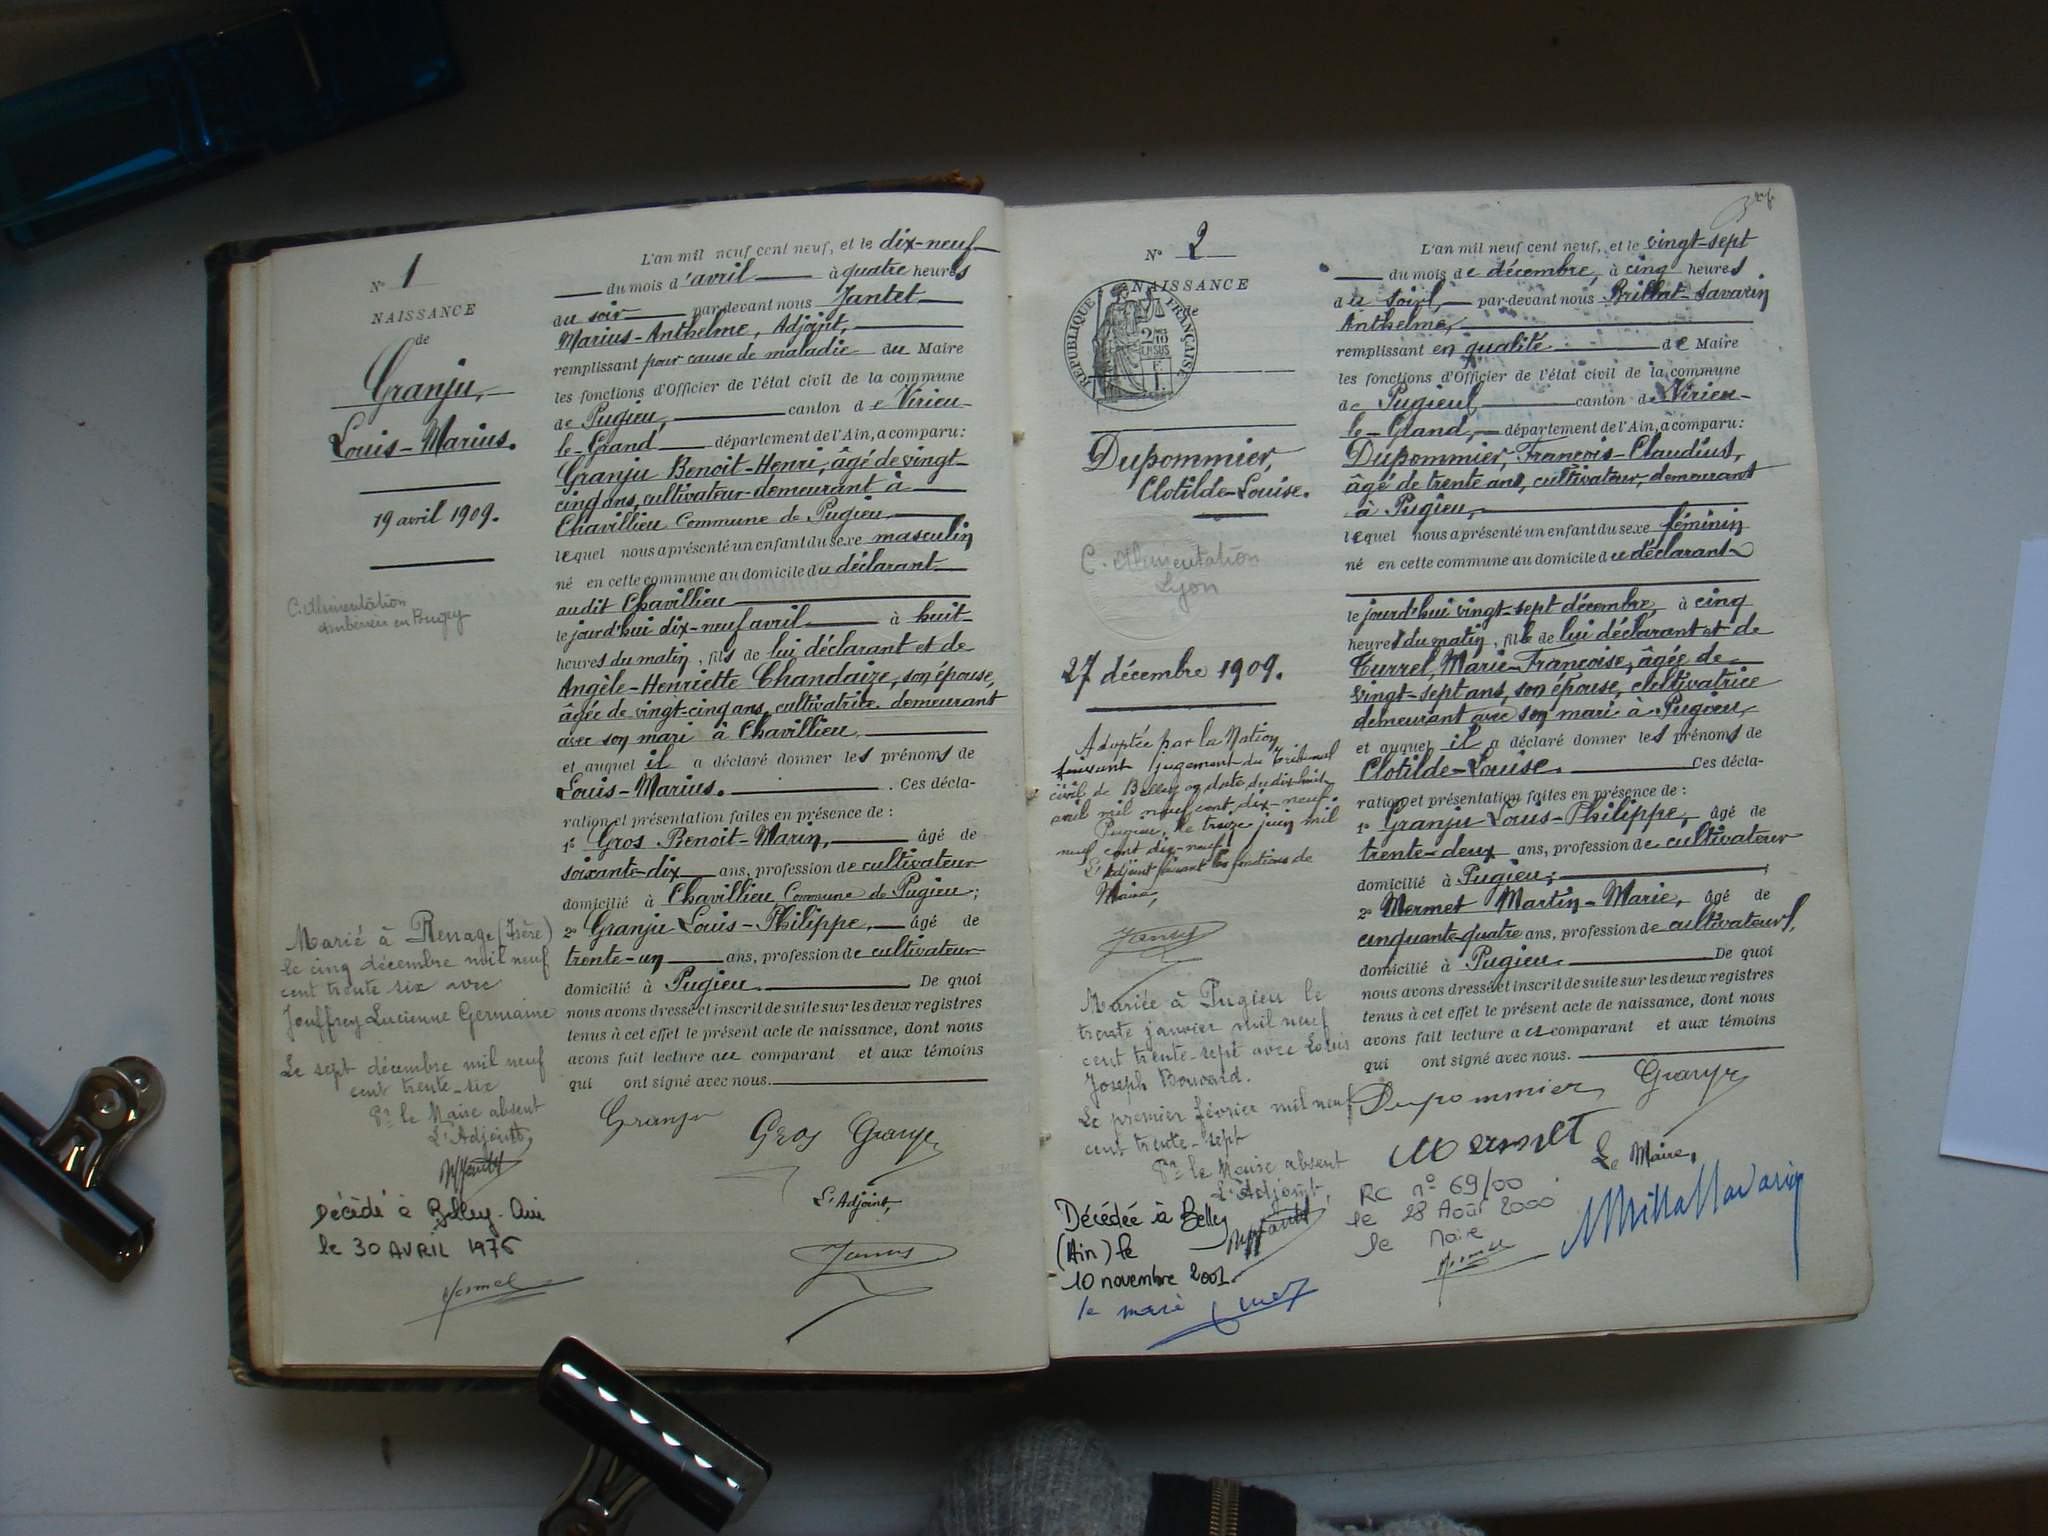 N° 1
NAISSANCE
de
Granju,
Louis-Marius.
19 avril 1909.
C. Alimentation
Ambérieu en Bugey
Marié à Renage (Isère)
le cinq décembre mil neuf
cent trente six avec
Jouffrey Lucienne Germaine
Le sept décembre mil neuf
cent trente-six
Pr le Maire absent
L'Adjoint,
Décédé à Belley-Ain
le 30 AVRIL 1976
L'an mil neuf cent neuf, et le dix-neuf
du mois d'avril à quatre heures
du soir par-devant nous Jantet
Marius-Anthelme, Adjoint,
remplissant pour cause de maladie du Maire
les fonctions d'Officier de l'état civil de la commune
de Pugieu, canton de Virieu-
le-Grand département de l'Ain, a comparu:
Granju Benoit-Henri, âgé de vingt-
cinq ans, cultivateur demeurant à
Chavillieu Commune de Pugieu
lequel nous a présenté un enfant du sexe masculin
né en cette commune au domicile du déclarant
au dit Chavillieu
le jourd'hui dix-neuf avril à huit
heures du matin, fils de lui déclarant et de
Angèle-Henriette Chandaize, son épouse,
âgée de vingt-cinq ans, cultivatrice demeurant
avec son mari à Chavillieu,
et auquel il a déclaré donner les prénoms de
Louis-Marius. . Ces décla-
ration et présentation faites en présence de :
1° Gros Benoit-Marin, âgé de
soixante-dix ans, profession de cultivateur
domicilié à Chavillieu, Commune de Pugieu;
2° Granju Louis-Philippe, âgé de
trente-un ans, profession de cultivateur
domicilié à Pugieu. De quoi
nous avons dressé et inscrit de suite sur les deux registres
tenus à cet effet le présent acte de naissance, dont nous
avons fait lecture au comparant et aux témoins
qui ont signé avec nous.
Granju Gros Granju
L'Adjoint,
N° 2
NAISSANCE
de
RÉPUBLIQUE FRANÇAISE
Dupommier,
Clotilde-Louise.
C. Alimentation
Lyon
27 décembre 1909.
Adoptée par la Nation
suivant jugement du Tribunal
civil de Belley en date du dix-huit
avril mil neuf cent dix-neuf.
Pugieu, le treize juin mil
neuf cent dix-neuf
L'Adjoint faisant les fonctions de
Maire,
Mariée à Pugieu le
trente janvier mil neuf
cent trente-sept avec Louis
Joseph Bouvard.
Le premier février mil neuf
cent trente-sept
Pr le Maire absent
L'Adjoint,
Décédée à Belley
(Ain) le
10 novembre 2001.
le maire
L'an mil neuf cent neuf, et le vingt-sept
du mois de décembre, à cinq heures
du soir, par-devant nous Brillat-Savarin
Anthelme,
remplissant en qualité de Maire
les fonctions d'Officier de l'état civil de la commune
de Pugieu canton de Virieu-
le-Grand, département de l'Ain, a comparu:
Dupommier, François-Claudius,
âgé de trente ans, cultivateur, demeurant
à Pugieu,
lequel nous a présenté un enfant du sexe féminin
né en cette commune au domicile du déclarant
le jourd'hui vingt-sept décembre, à cinq
heures du matin, fille de lui déclarant et de
Turrel, Marie-Françoise, âgée de
vingt-sept ans, son épouse, cultivatrice
demeurant avec son mari à Pugieu,
et auquel il a déclaré donner les prénoms de
Clotilde-Louise. Ces décla-
ration et présentation faites en présence de :
1° Granju Louis-Philippe, âgé de
trente-deux ans, profession de cultivateur
domicilié à Pugieu;
2° Mermet Martin-Marie, âgé de
cinquante-quatre ans, profession de cultivateur,
domicilié à Pugieu. De quoi
nous avons dressé et inscrit de suite sur les deux registres
tenus à cet effet le présent acte de naissance, dont nous
avons fait lecture au comparant et aux témoins
qui ont signé avec nous.
Dupommier Granju
Mermet Le Maire,
RC n° 69/00
le 28 Août 2000
le Maire